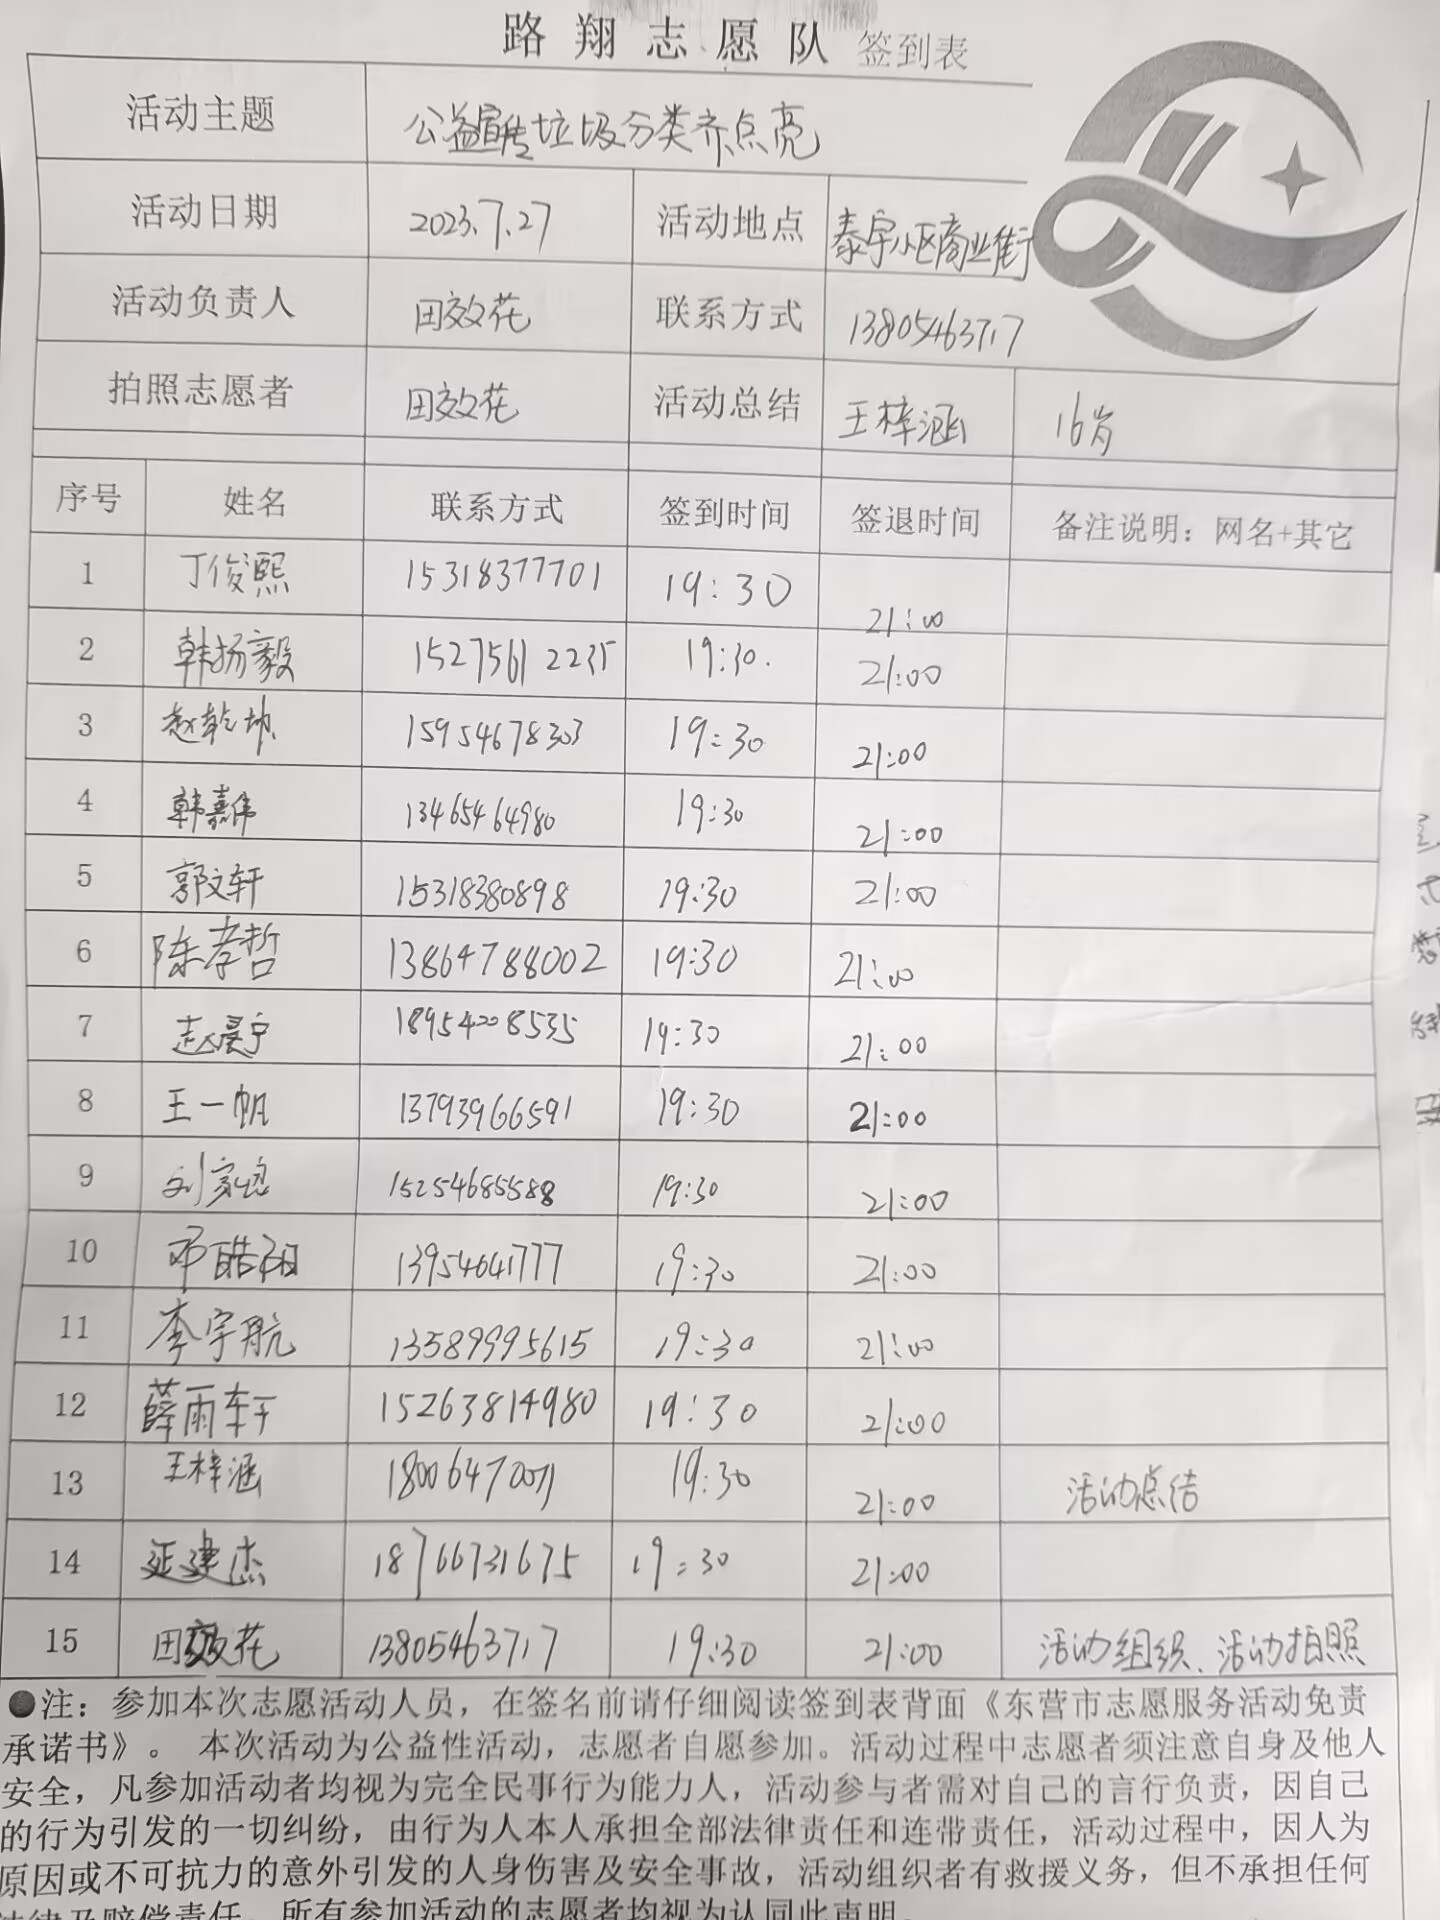 路翔志愿队 签到表
活动主题 公益宣传垃圾分类齐点亮
活动日期 2023.7.27 活动地点 泰宇小区商业街
活动负责人 田效花 联系方式 13805463717
拍照志愿者 田效花 活动总结 王梓涵 16岁
序号 姓名 联系方式 签到时间 签退时间 备注说明：网名+其它
1 丁俊熙 15318377701 19:30 21:00
2 韩扬毅 15275612235 19:30. 21:00
3 赵乾坤 15954678303 19:30 21:00
4 韩嘉伟 13465464980 19:30 21:00
5 郭文轩 15318380898 19:30 21:00
6 陈孝哲 13864788002 19:30 21:00
7 赵晨宁 18954208535 19:30 21:00
8 王一帆 13793966591 19:30 21:00
9 刘家 15254685588 19:30 21:00
10 邓皓阳 13954641777 19:30 21:00
11 李宇航 13589995615 19:30 21:00
12 薛雨轩 15263814980 19:30 21:00
13 王梓涵 19:30 21:00 活动总结
14 延建杰 18766731675 19:30 21:00
15 田效花 13805463717 19:30 21:00 活动组织、活动拍照
●注：参加本次志愿活动人员，在签名前请仔细阅读签到表背面《东营市志愿服务活动免责
承诺书》。 本次活动为公益性活动，志愿者自愿参加。活动过程中志愿者须注意自身及他人
安全，凡参加活动者均视为完全民事行为能力人，活动参与者需对自己的言行负责，因自己
的行为引发的一切纠纷，由行为人本人承担全部法律责任和连带责任，活动过程中，因人为
原因或不可抗力的意外引发的人身伤害及安全事故，活动组织者有救援义务，但不承担任何
法律及赔偿责任。所有参加活动的志愿者均视为认同此声明。